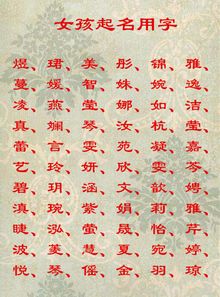 女孩起名用字
煜、珺、美、彤、锦、雅、
蔓、媛、智、姝、婉、逸、
凌、燕、莹、娜、如、洁、
真、斓、琴、汝、杭、莹、
蕾、言、雯、苑、凝、嘉、
艺、玲、妍、欣、雯、芩、
碧、玥、涵、文、歆、娉、
滇、琬、紫、娟、莉、雅、
睫、泓、萤、晟、怡、芹、
波、葲、慧、夏、宛、婷、
悦、琴、瑶、金、羽、琼、